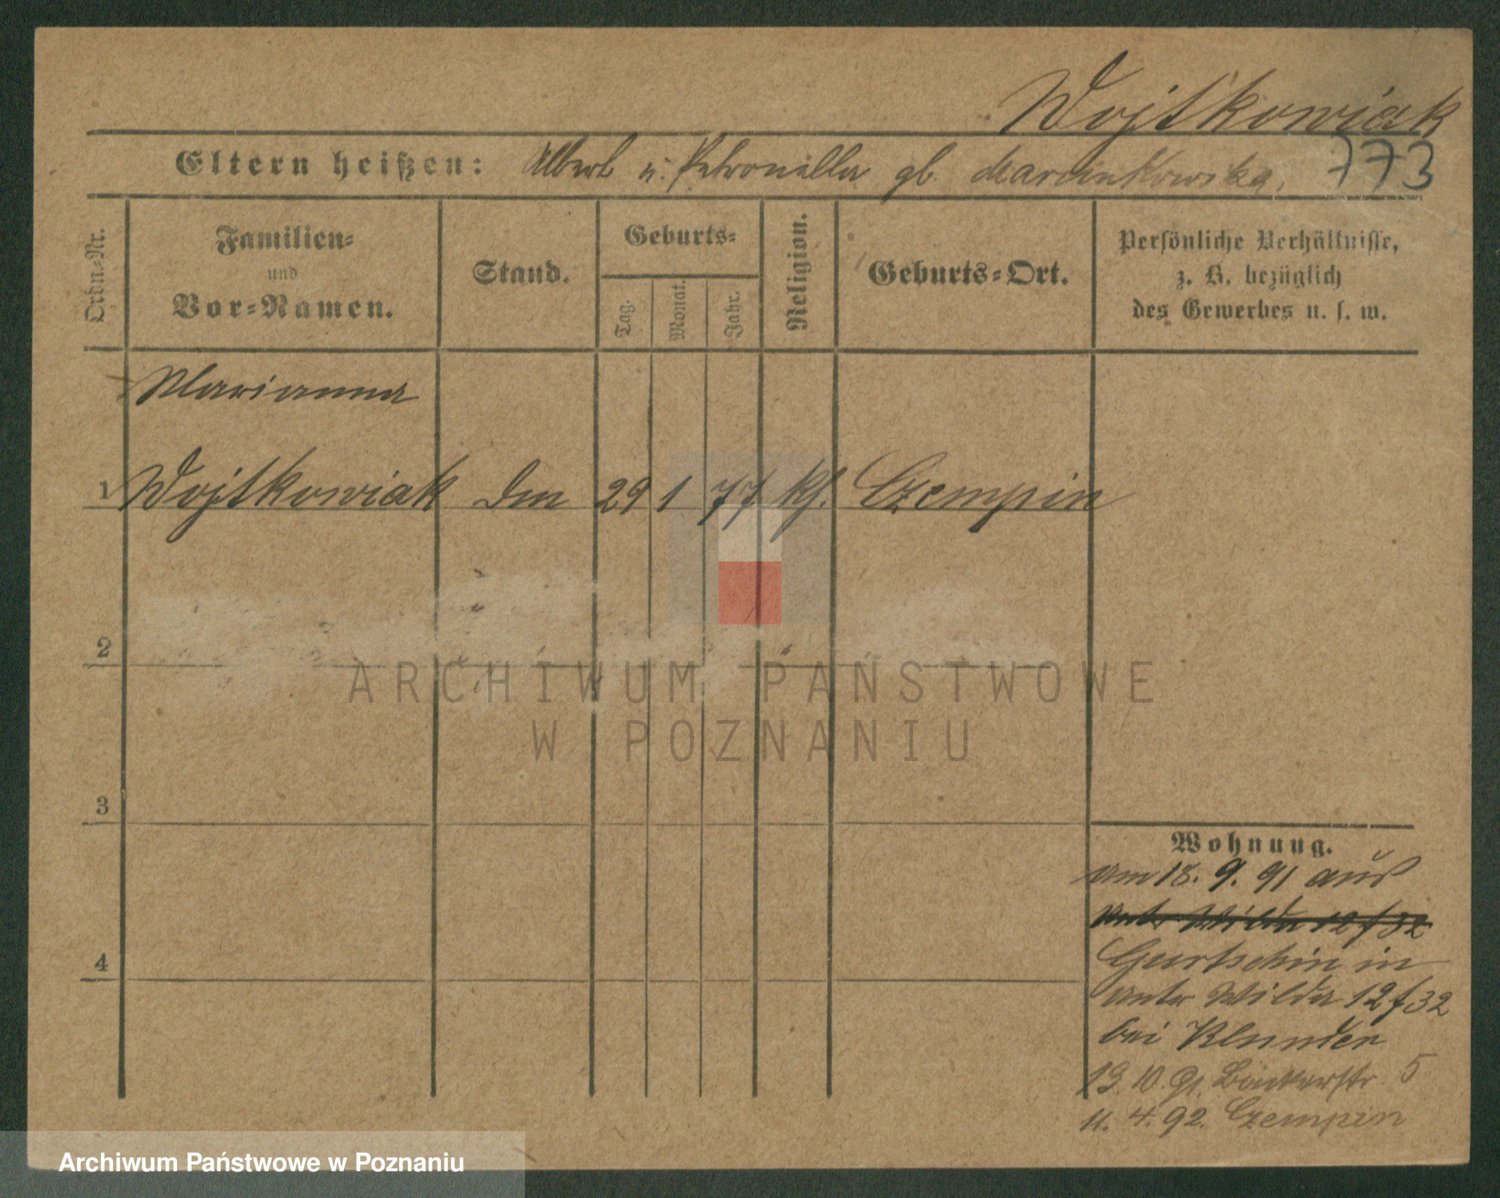 Wojtkowiak
Eltern heißen: Albert u. Petronella gb. Marcinkowska.
773
Ordn.-Nr.
Familien-
und
Vor-Namen.
Stand.
Geburts-
Tag.
Monat.
Jahr.
Religion.
Geburts-Ort.
Persönliche Verhältnisse,
z. B. bezüglich
des Gewerbes u. s. w.
Marianna
1 Wojtkowiak Dm 29 1 77 kf. Czempin
2
3
4
Wohnung.
am 18. 9. 91 aus
Unter Wilda 12 f 32
Gurtschin in
Unter Wilda 12 f 32
bei Klunder
13. 10. 91. Bäckerstr. 5
11. 4. 92. Czempin
ARCHIWUM PAŃSTWOWE
W POZNANIU
Archiwum Państwowe w Poznaniu